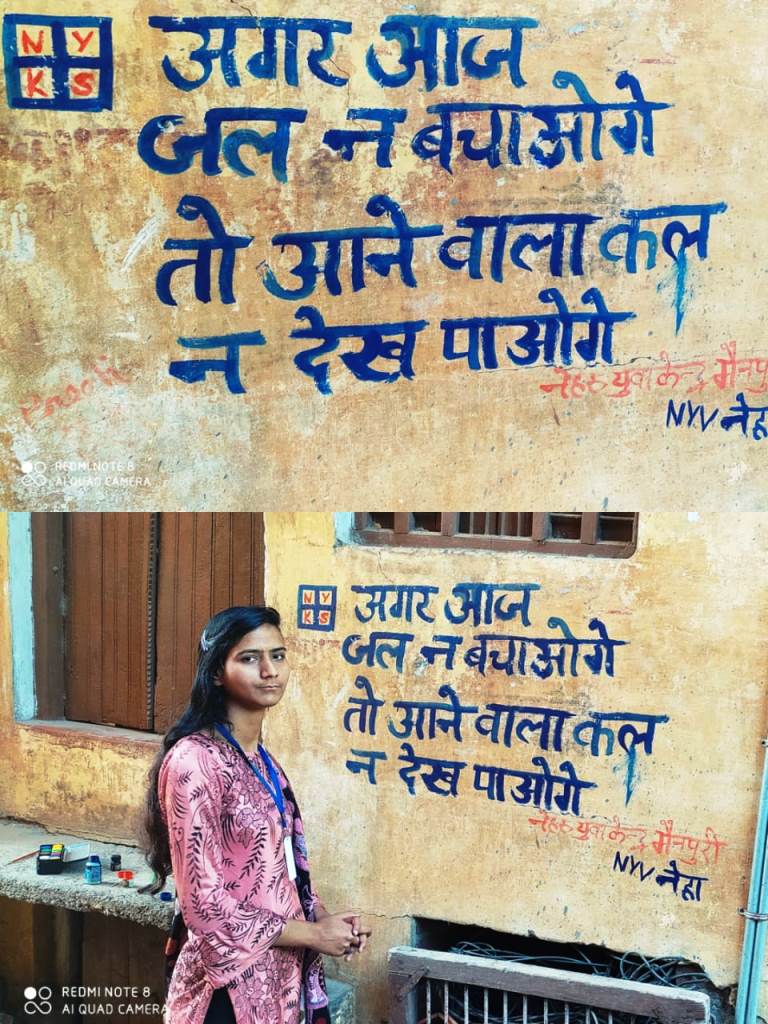 NY
KS
अगर आज
जल न बचाओगे
तो आने वाला कल
न देख पाओगे
नेहरु युवा केन्द्र मैनपु
NYV नेहा
REDMI NOTE 8
AI QUAD CAMERA
NY
KS
अगर आज
जल न बचाओगे
तो आने वाला कल
न देख पाओगे
नेहरु युवा केन्द्र मैनपुरी
NYV नेहा
REDMI NOTE 8
AI QUAD CAMERA